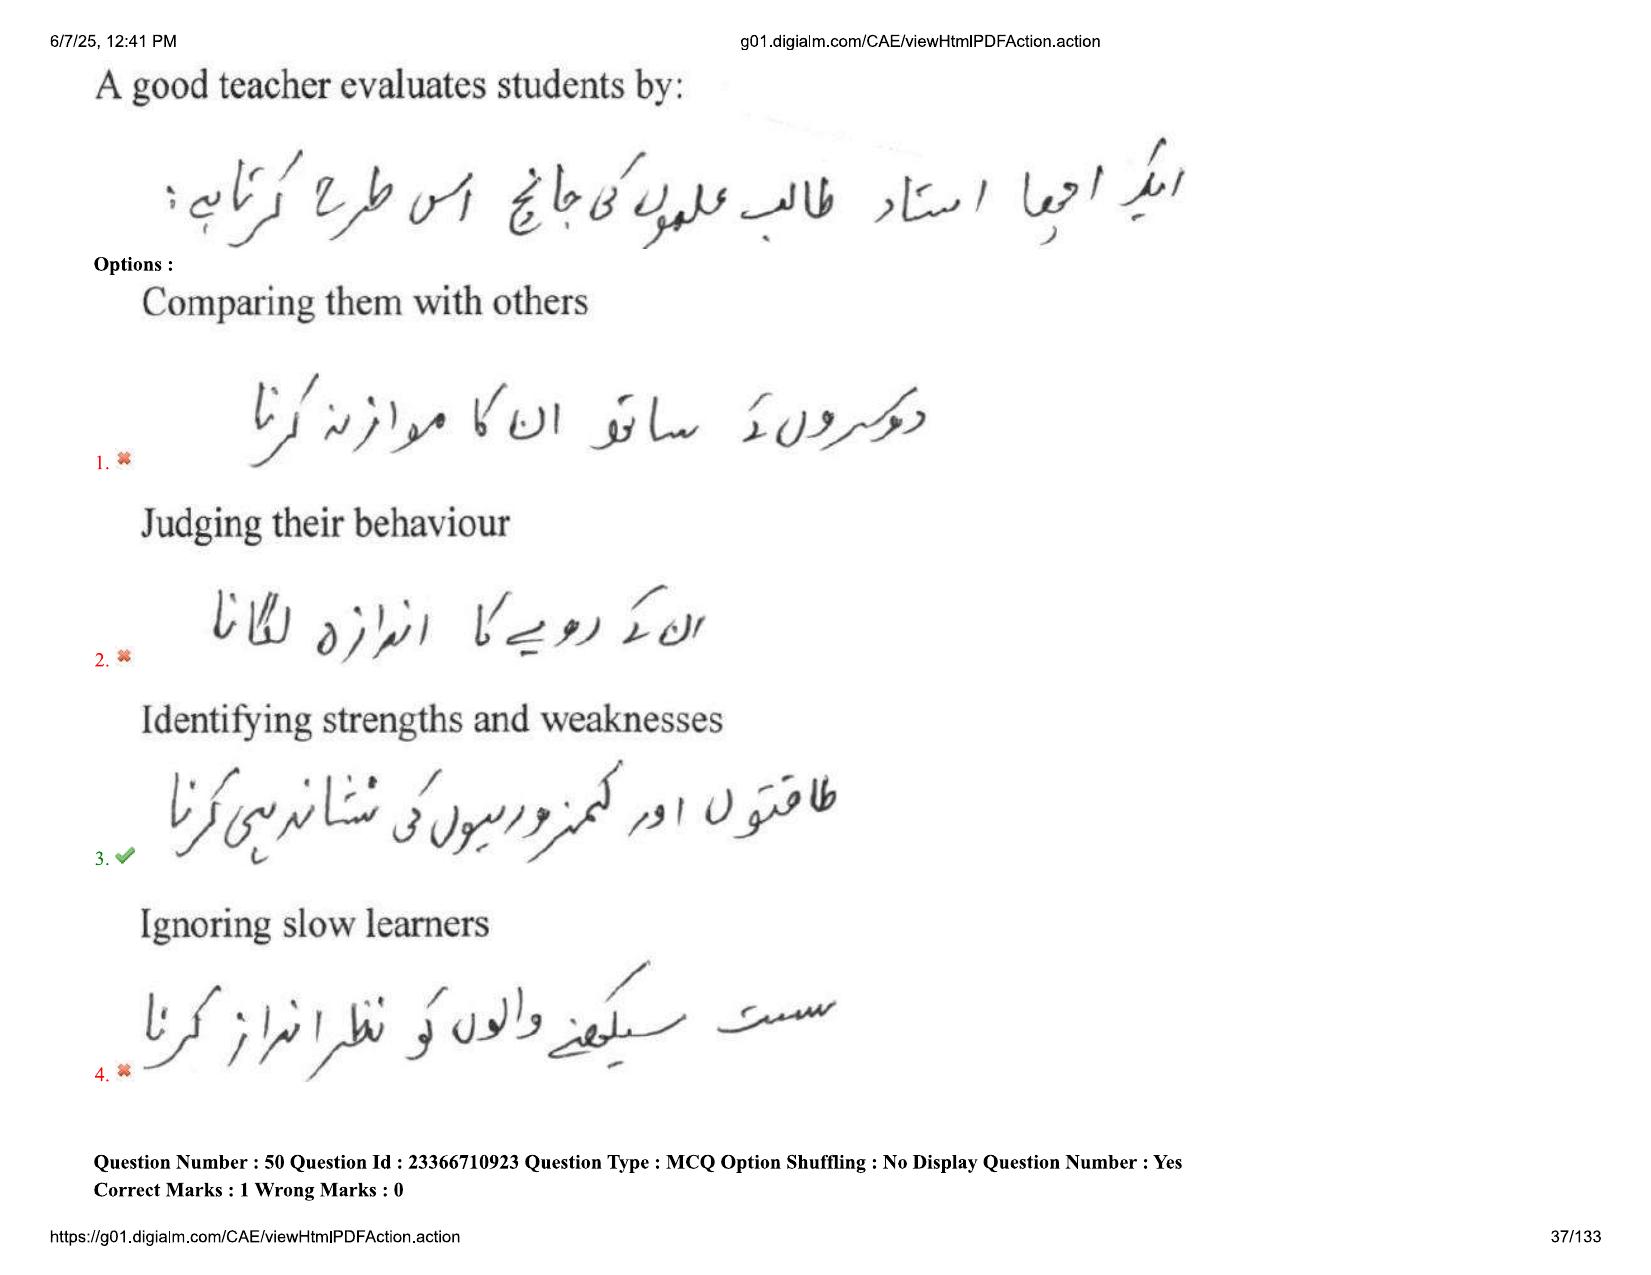 6/7/25, 12:41 PM
g01.digialm.com/CAE/viewHtmlPDFAction.action
A good teacher evaluates students by:
ایک اچھا استاد طالب علموں کی جانچ اس طرح کرتا ہے:
Options :
Comparing them with others
دوسروں کے ساتھ ان کا موازنہ کرنا
1.
Judging their behaviour
ان کے رویے کا اندازہ لگانا
2.
Identifying strengths and weaknesses
طاقتوں اور کمزوریوں کی نشاندہی کرنا
3.
Ignoring slow learners
سست سیکھنے والوں کو نظر انداز کرنا
4.
Question Number : 50 Question Id : 23366710923 Question Type : MCQ Option Shuffling : No Display Question Number : Yes
Correct Marks : 1 Wrong Marks : 0
https://g01.digialm.com/CAE/viewHtmlPDFAction.action
37/133